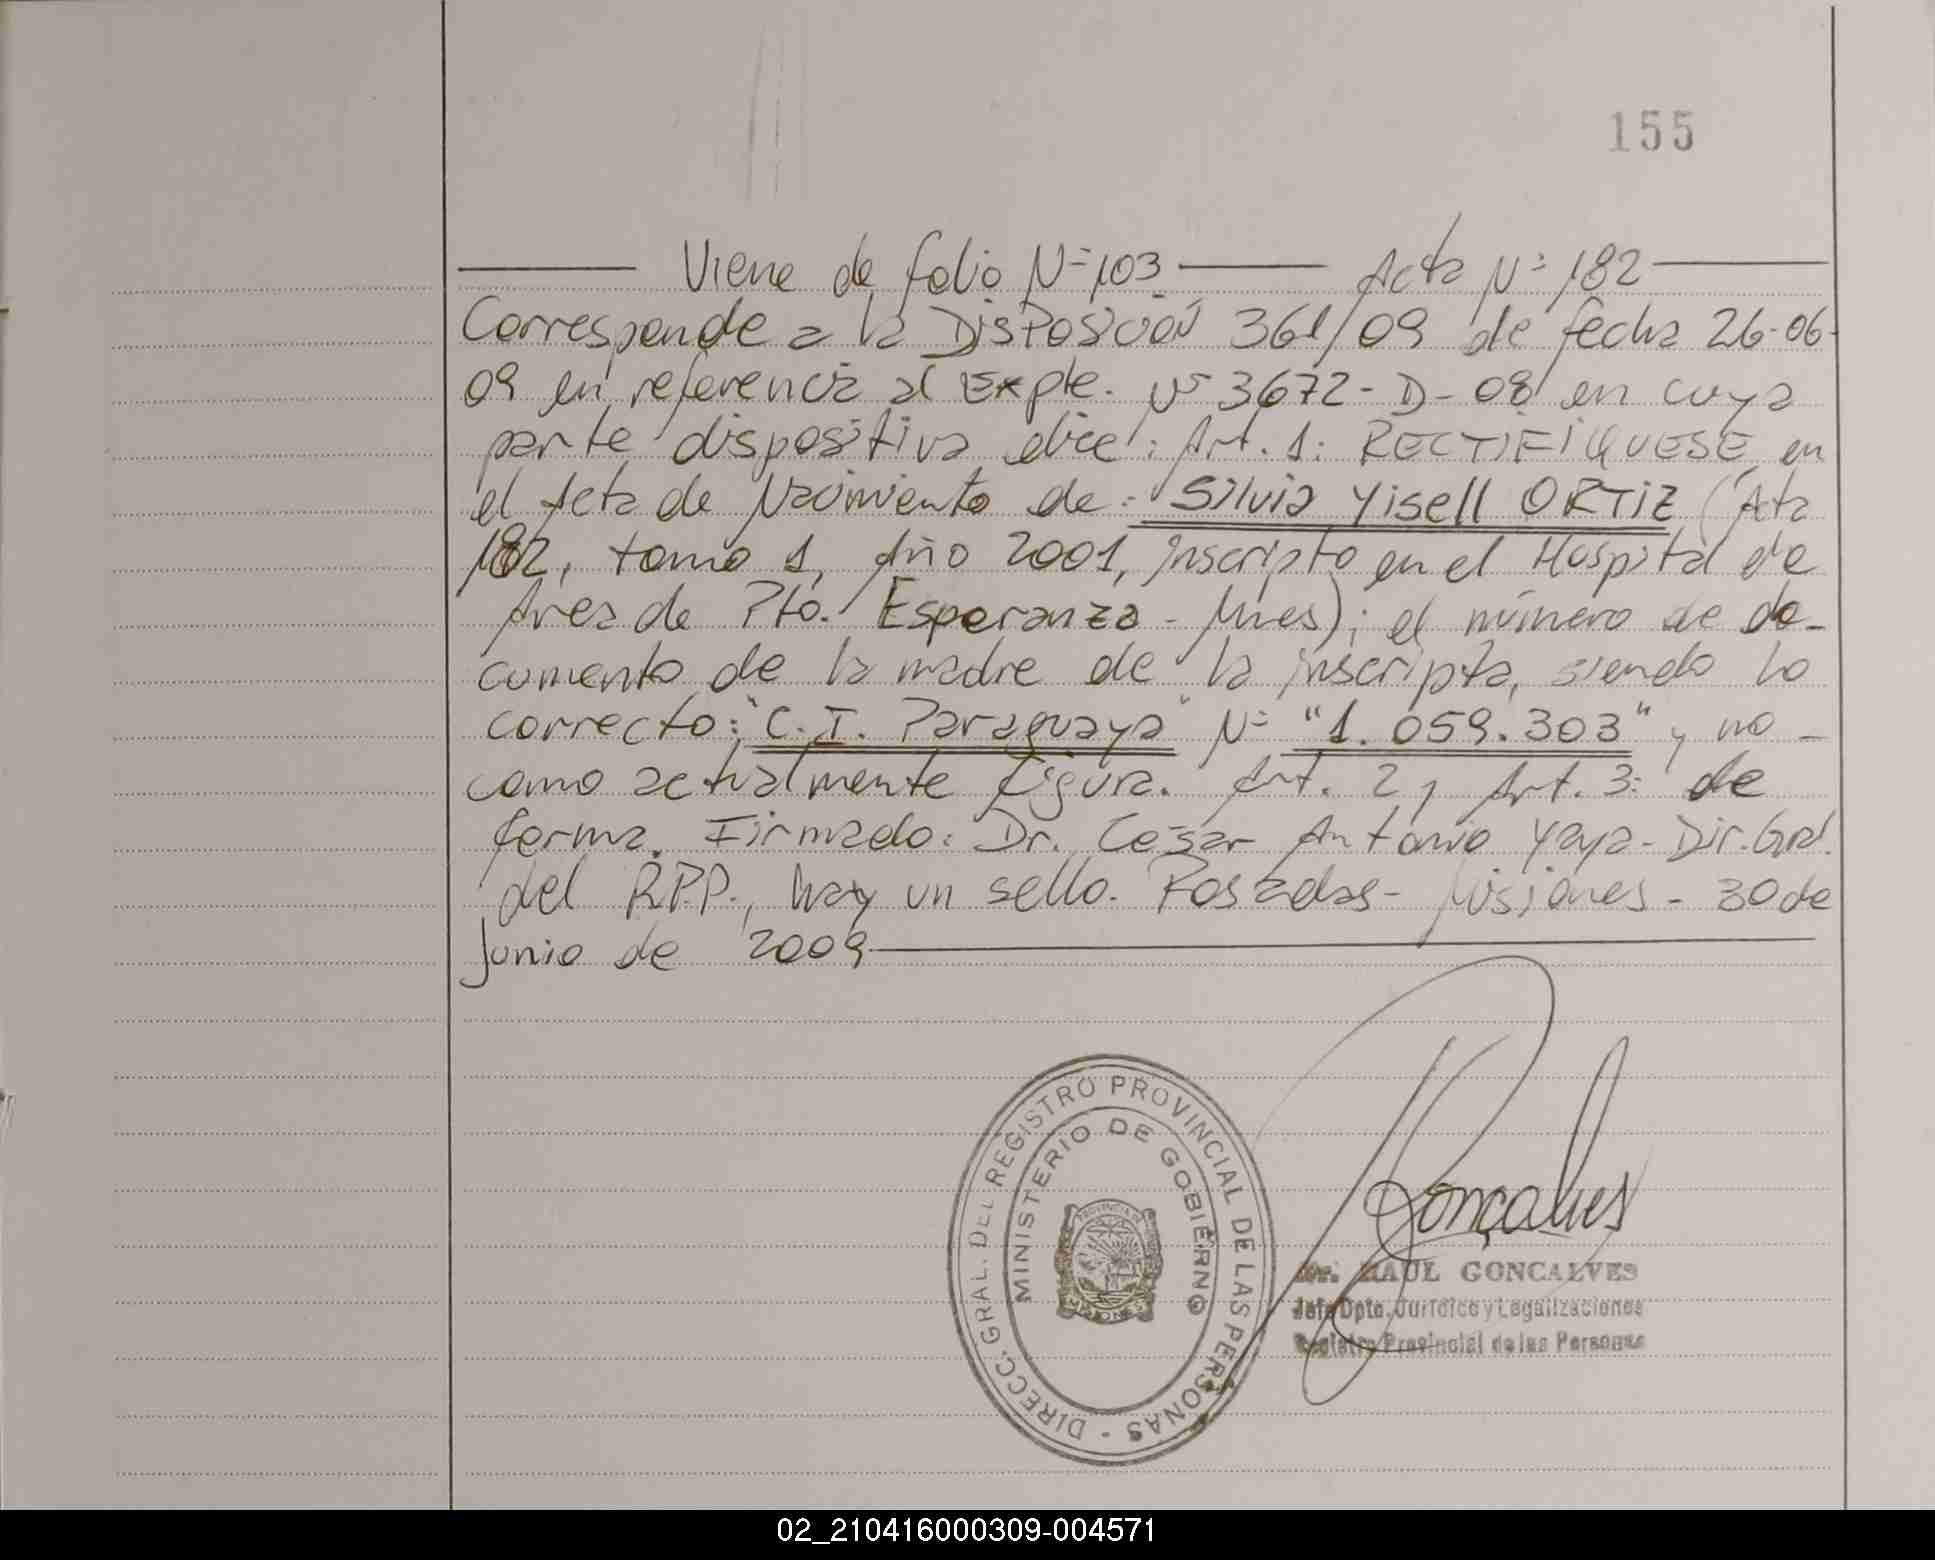 155
Viene de folio Nº 103 Acta Nº 182
Corresponde a la Disposición 361/09 de fecha 26-06-
09 en referencia al Expte. Nº 3672-D-08 en cuya
parte dispositiva dice: Art. 1: RECTIFIQUESE en
el Acta de Nacimiento de: Silvia Yisell ORTIZ (Acta
182, tomo 1, Año 2001, inscripto en el Hospital de
Area de Pto. Esperanza - Mnes); el número de do-
cumento de la madre de la inscripta, siendo lo
correcto: "C.I. Paraguaya" Nº "1.059.303" y no
como actualmente figura. Art. 2 y Art. 3: de
forma. Firmado: Dr. Cesar Antonio Yaya - Dir. Gral.
del R.P.P., hay un sello. Posadas - Misiones - 30 de
Junio de 2009
DIRECC. GRAL. DEL REGISTRO PROVINCIAL DE LAS PERSONAS -
MINISTERIO DE GOBIERNO
PROVINCIA DE
MISIONES
Gonçalves
Dr. RAUL GONCALVES
Jefe Dpto. Jurídico y Legalizaciones
Registro Provincial de las Personas
02_210416000309-004571